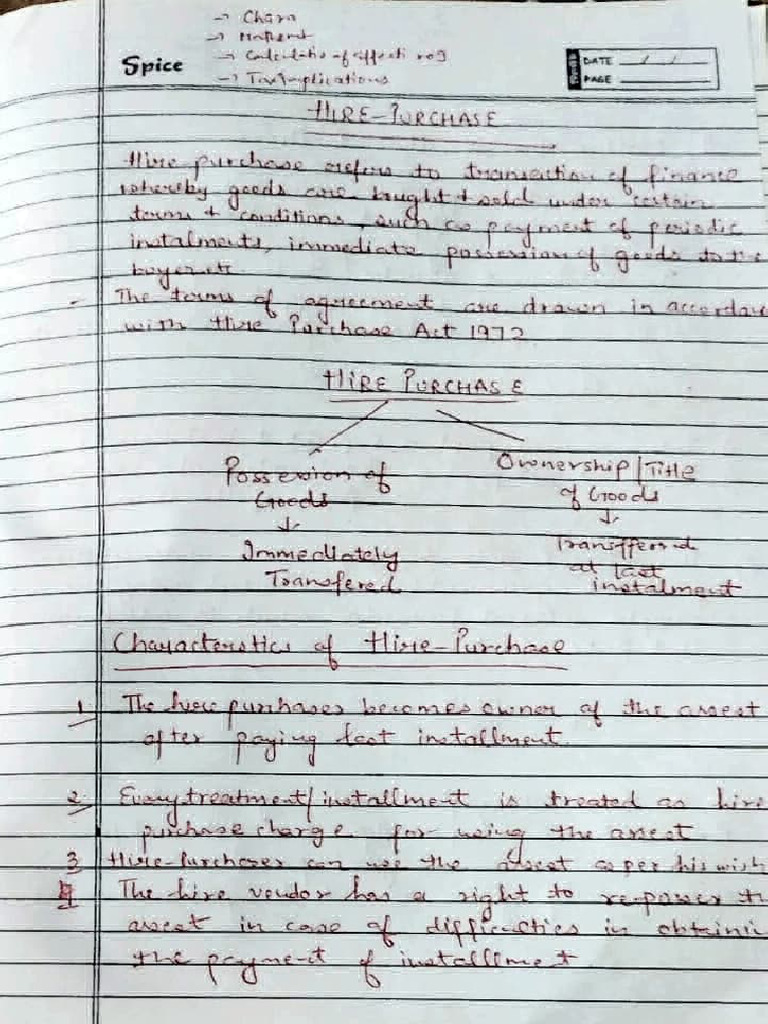 → Chara
→
→ Calculatio of effecti roI
→ Tax implications
Spice
DATE
PAGE
HIRE-PURCHASE
Hire purchase refers to transaction of finance
whereby goods are bought & sold under certain
terms & conditions, such as payment of periodic
instalments, immediate possession of goods to the
buyer etc.
- The terms of agreement are drawn in accordan
with Hire Purchase Act 1972
HIRE PURCHASE
Possession of Goods
↓
Immediately Transfered
Ownership/Title of Goods
↓
Transffered at last instalment
Characteristics of Hire-Purchase
1 The hire purchaser becomes owner of the asset
after paying last installment.
2 Every treatment/installment is treated as hire
purchase charge for using the asset
3 Hire-Purchaser can use the asset as per his wish
4 The hire vendor has a right to re-posses th
asset in case of difficulties in obtaini
the payment of installlment